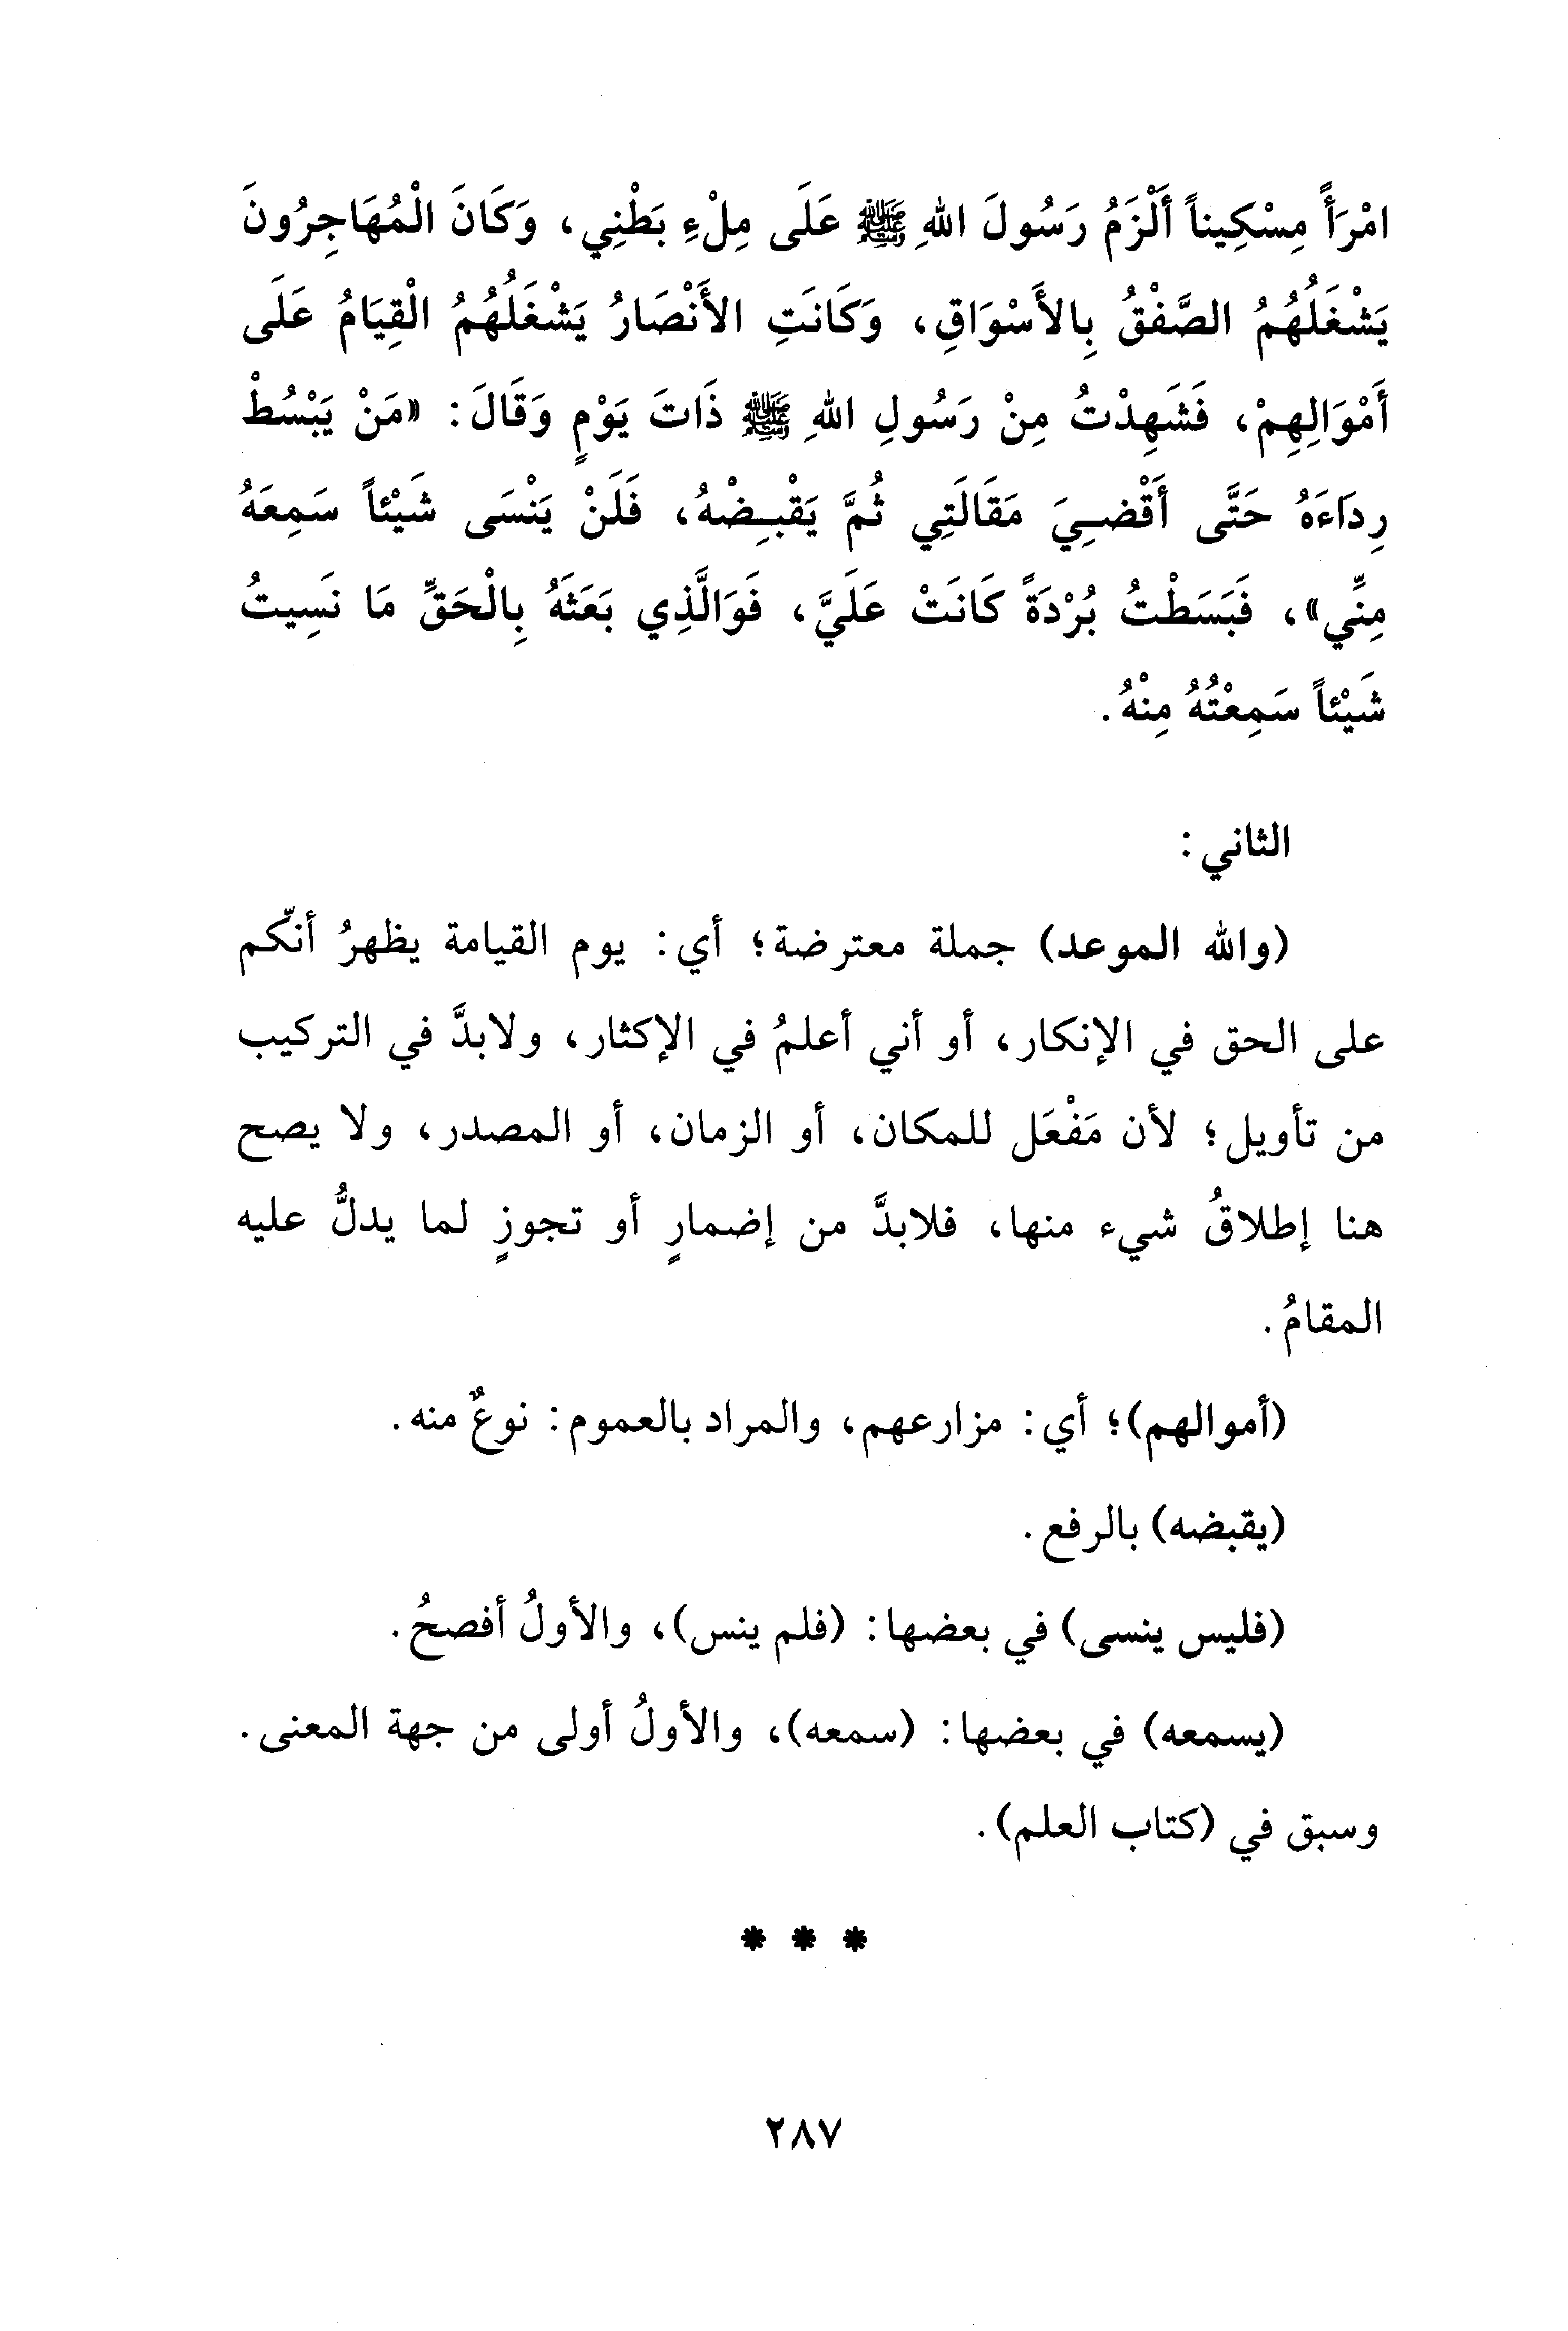 امْرَأً مِسْكِيناً أَلْزَمُ رَسُولَ اللهِ ﷺ عَلَى مِلْءِ بَطْنِي، وَكَانَ الْمُهَاجِرُونَ
يَشْغَلُهُمُ الصَّفْقُ بِالأَسْوَاقِ، وَكَانَتِ الأَنْصَارُ يَشْغَلُهُمُ الْقِيَامُ عَلَى
أَمْوَالِهِمْ، فَشَهِدْتُ مِنْ رَسُولِ اللهِ ﷺ ذَاتَ يَوْمٍ وَقَالَ: «مَنْ يَبْسُطْ
رِدَاءَهُ حَتَّى أَقْضِيَ مَقَالَتِي ثُمَّ يَقْبِضْهُ، فَلَنْ يَنْسَى شَيْئاً سَمِعَهُ
مِنِّي»، فَبَسَطْتُ بُرْدَةً كَانَتْ عَلَيَّ، فَوَالَّذِي بَعَثَهُ بِالْحَقِّ مَا نَسِيتُ
شَيْئاً سَمِعْتُهُ مِنْهُ.
الثاني:
(والله الموعد) جملة معترضة؛ أي: يوم القيامة يظهرُ أنّكم
على الحق في الإنكار، أو أني أعلمُ في الإكثار، ولابدَّ في التركيب
من تأويل؛ لأن مَفْعَل للمكان، أو الزمان، أو المصدر، ولا يصح
هنا إطلاقُ شيء منها، فلابدَّ من إضمارٍ أو تجوزٍ لما يدلُّ عليه
المقامُ.
(أموالهم)؛ أي: مزارعهم، والمراد بالعموم: نوعٌ منه.
(يقبضه) بالرفع.
(فليس ينسى) في بعضها: (فلم ينس)، والأولُ أفصحُ.
(يسمعه) في بعضها: (سمعه)، والأولُ أولى من جهة المعنى.
وسبق في (كتاب العلم).
* * *
٢٨٧